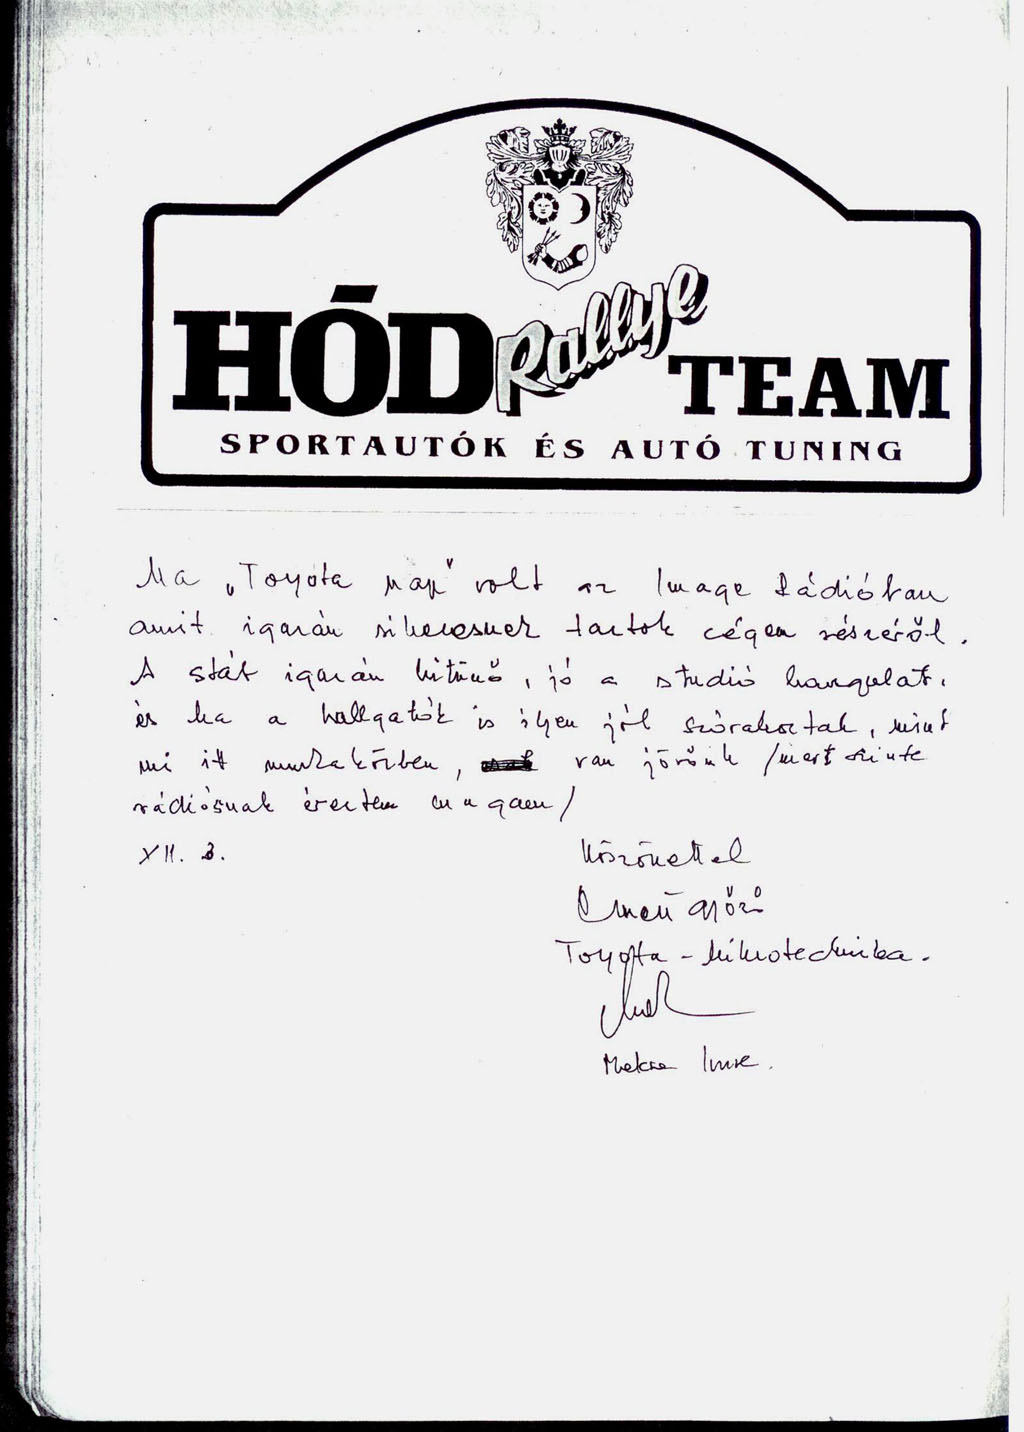 HÓD Rallye TEAM
SPORTAUTÓK ÉS AUTÓ TUNING
Ma „Toyota nap" volt az Image Rádióban
amit igazán sikeresnek tartok cégem részéről.
A stáb igazán kitünő, jó a studió hangulat,
és ha a hallgatók is ilyen jól szórakoztak, mint
mi itt munkakörben, van jövőnk /mert szinte
rádiósnak éreztem magam/
XII. 3.
Köszönettel
Győző
Toyota - Mikrotechnika.
Imre.